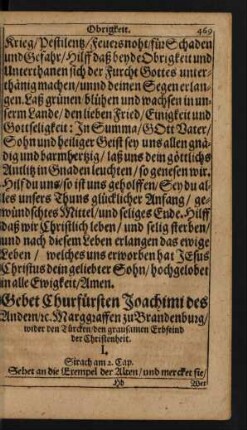 Obrigkeit. 469
Krieg/Pestilentz/Feuersnoht/für Schaden
und Gefahr/Hilff daß beyde Obrigkeit und
Unterthanen sich der Furcht Gottes unter-
thänig machen/und deinen Segen erlan-
gen. Laß grünen/blühen und wachsen in un-
serm Lande/den lieben Fried/Einigkeit und
Gottseligkeit: In Summa/GOtt Vater/
Sohn und heiliger Geist sey uns allen gnä-
dig und barmhertzig/laß uns dein göttlichs
Antlitz in Gnaden leuchten/so genesen wir.
Hilf du uns/so ist uns geholffen/Sey du al-
les unsers Thuns glücklicher Anfang/ge-
wündschtes Mittel/und seliges Ende. Hilff
daß wir Christlich leben/und selig sterben/
und nach diesem Leben erlangen das ewige
Leben/welches uns erworben hat JEsus
Christus dein geliebter Sohn/hochgelobet
in alle Ewigkeit/Amen.
Gebet Churfürsten Joachimi des
Andern/rc. Marggraffen zu Brandenburg/
wider den Türcken/den grausamen Erbfeind
der Christenheit.
I.
Sirach am 2. Cap.
Sehet an die Exempel der Alten/und mercket sie/
Hh Wer